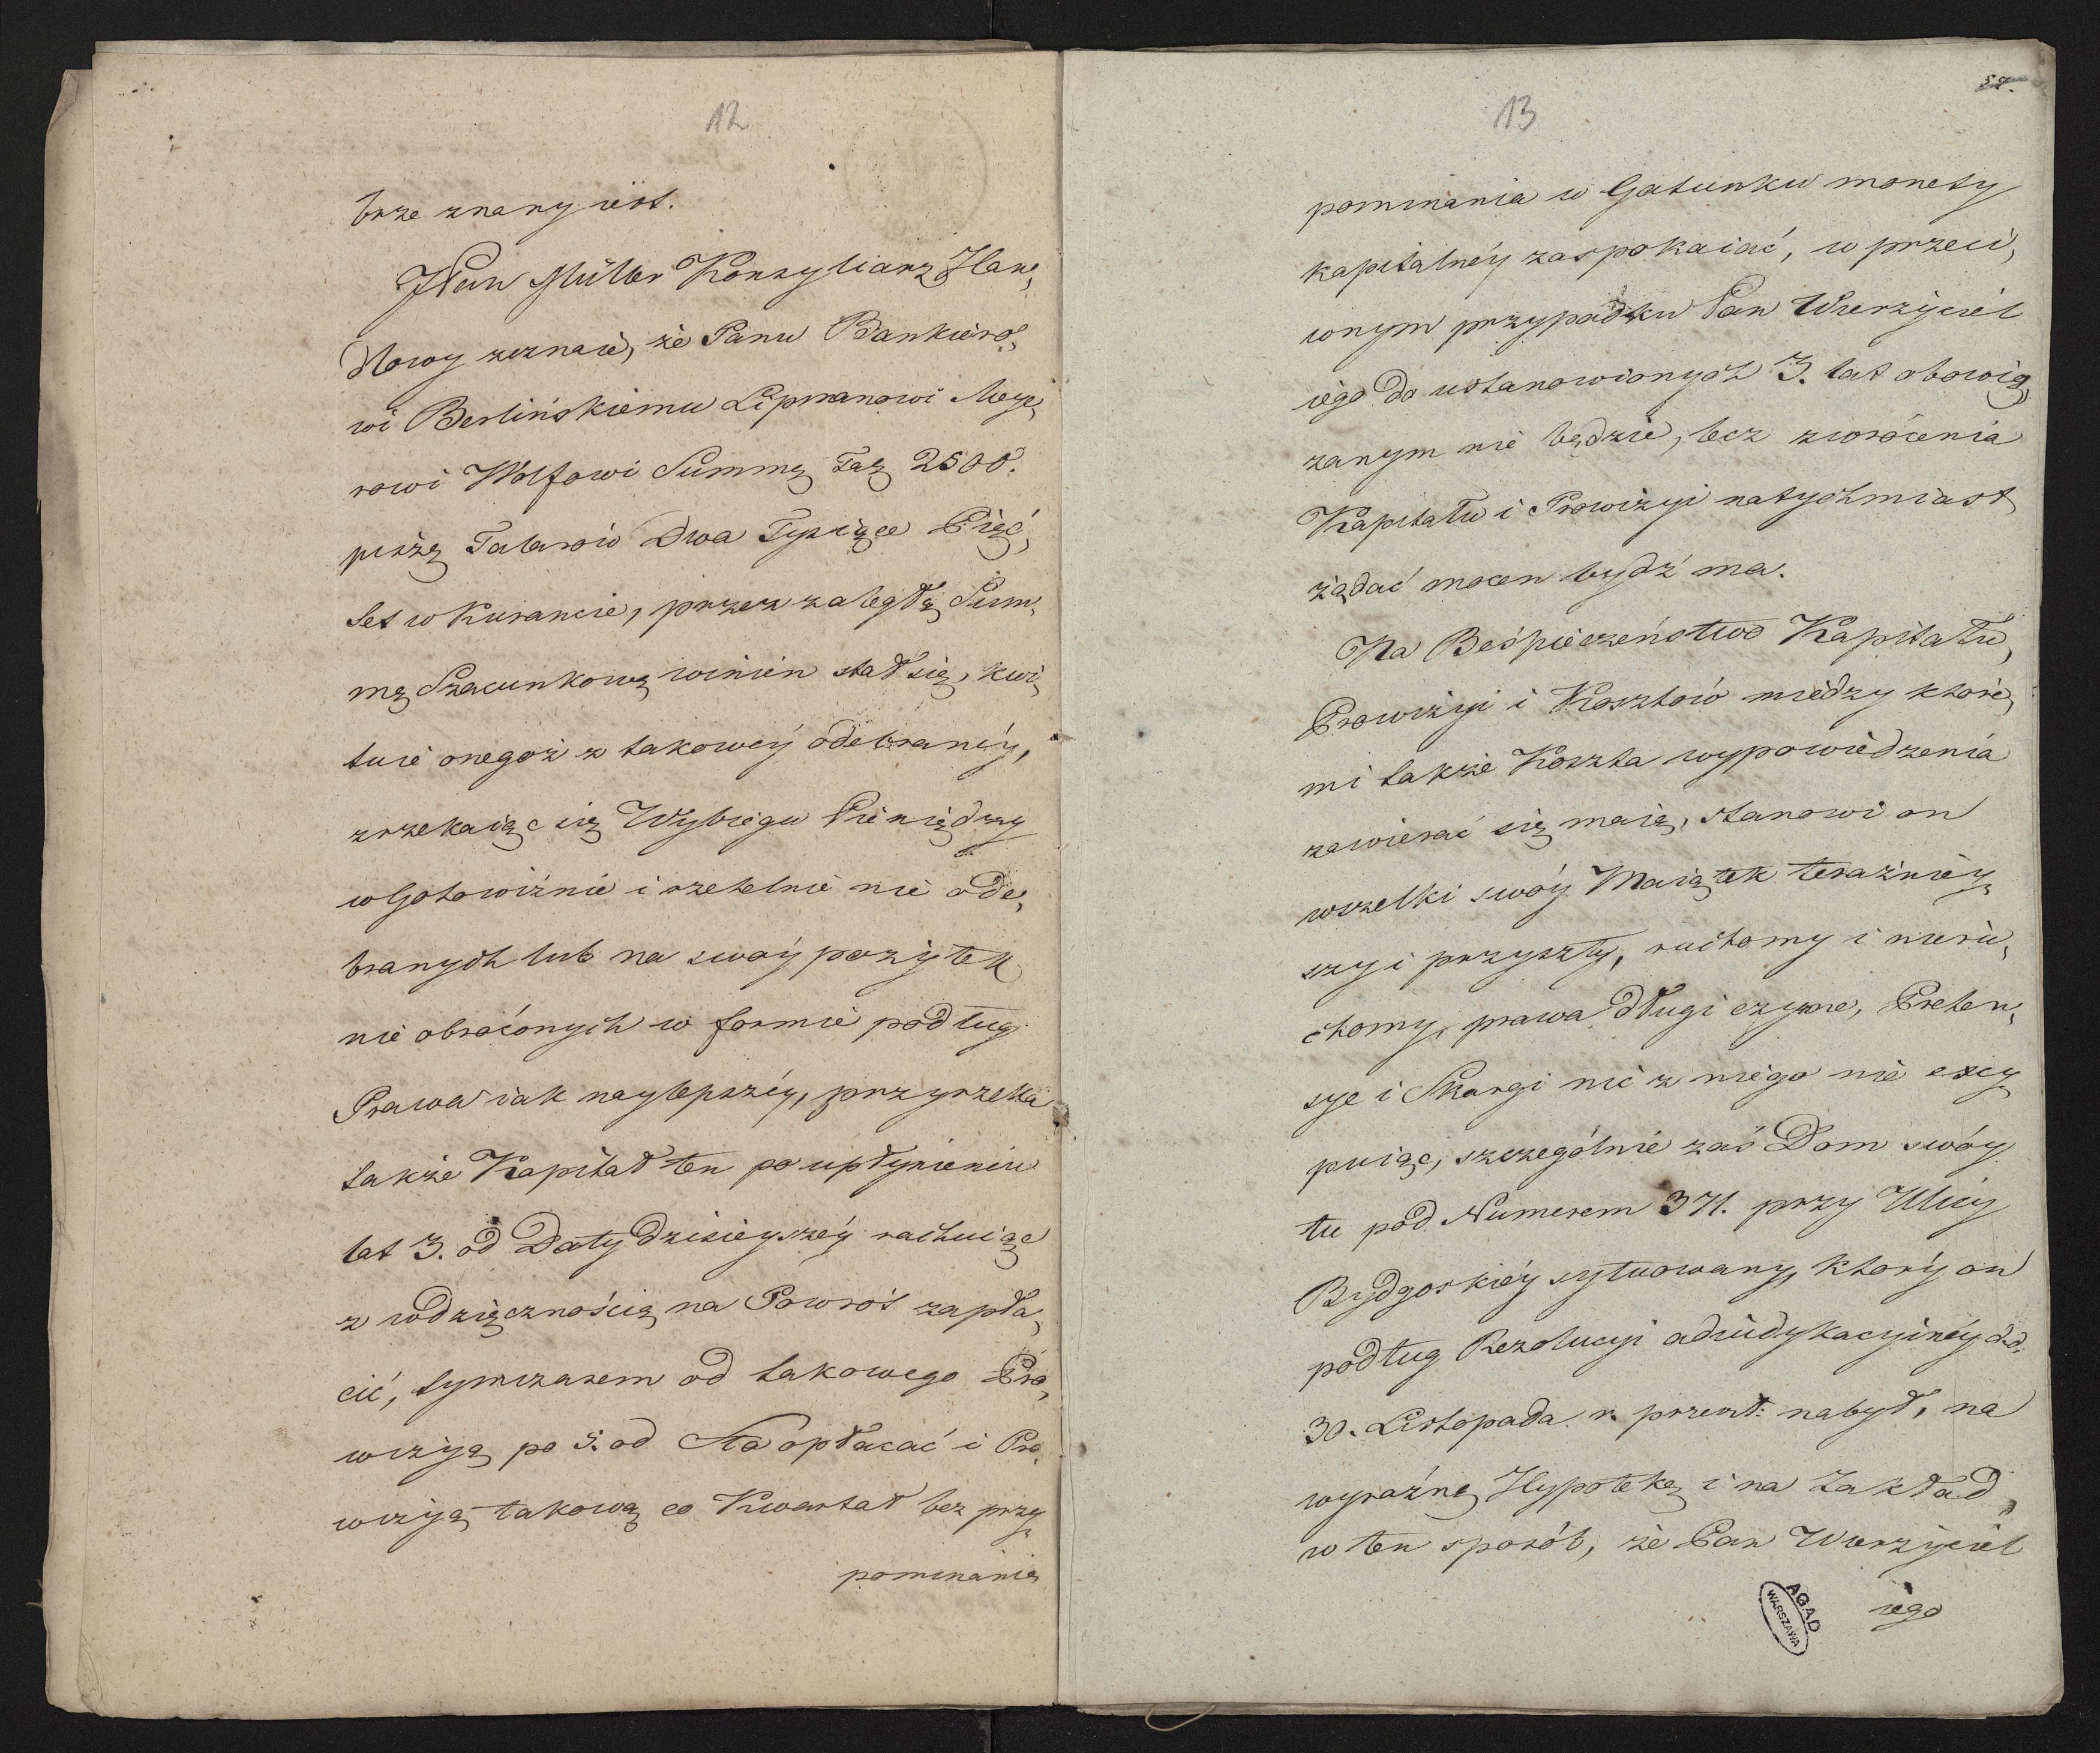 12
brze znany iest.
JPan Müller Konsyliarz Han,
dlowy zeznaie, że Panu Bankiero,
wi Berlińskiemu Lipmanowi Meye,
rowi Wolfowi Summę Taż 2500.
piszę Talarów Dwa Tysiące Pięć,
set w Kurancie, przez zaległą Sum,
mę Szacunkową winien stał się, kwi,
tuie onegoż z takowéy odebranéy,
zrzekaiąc się Wybiegu Pieniędzy
w Gotowiźnie i rzetelnie nie ode,
branych lub na swóy pożytek
nie obróconych w formie podług
Prawa iak naylepszéy, przyrzeka
także Kapitał ten po upłynieniu
lat 3. od Daty dzisieyszéy rachuiąc
z wdzięcznością na Powrót zapła,
cić, tymczasem od takowego Pro,
wizyą po 5. od Sta opłacać i Pro,
wizyą takową co Kwartał bez przy,
pominania
13
pominania w Gatunku monety
kapitalnéy zaspokaiać, w przeci,
wnym przypadku Pan Wierzyciel
iego do ustanowionych 3. lat obowią,
zanym nie będzie, lecz zwrócenia
Kapitału i Prowizyi natychmiast
żądać mocen bydź ma.
Na Beśpieczeństwo Kapitału,
Prowizyi i Kosztów między które,
mi także Koszta wypowiedzenia
zawierać się maią, stanowi on
wszelki swóy Maiątek teraźniéy,
szy i przyszły, ruchomy i nieru,
chomy, prawa długi czynne, Preten,
sye i Skargi nic z niego nie excy,
puiąc, szczególnie zaś Dom swóy
tu pod Numerem 371. przy Ulicy
Bydgoskiéy sytuowany, który on
podług Rezolucyi adiudykacyinéy d.d.
30. Listopada r. przeszł: nabył, na
wyraźną Hypotekę i na Zakład
w ten sposób, że Pan Wierzyciel
iego
AGAD
WARSZAWA